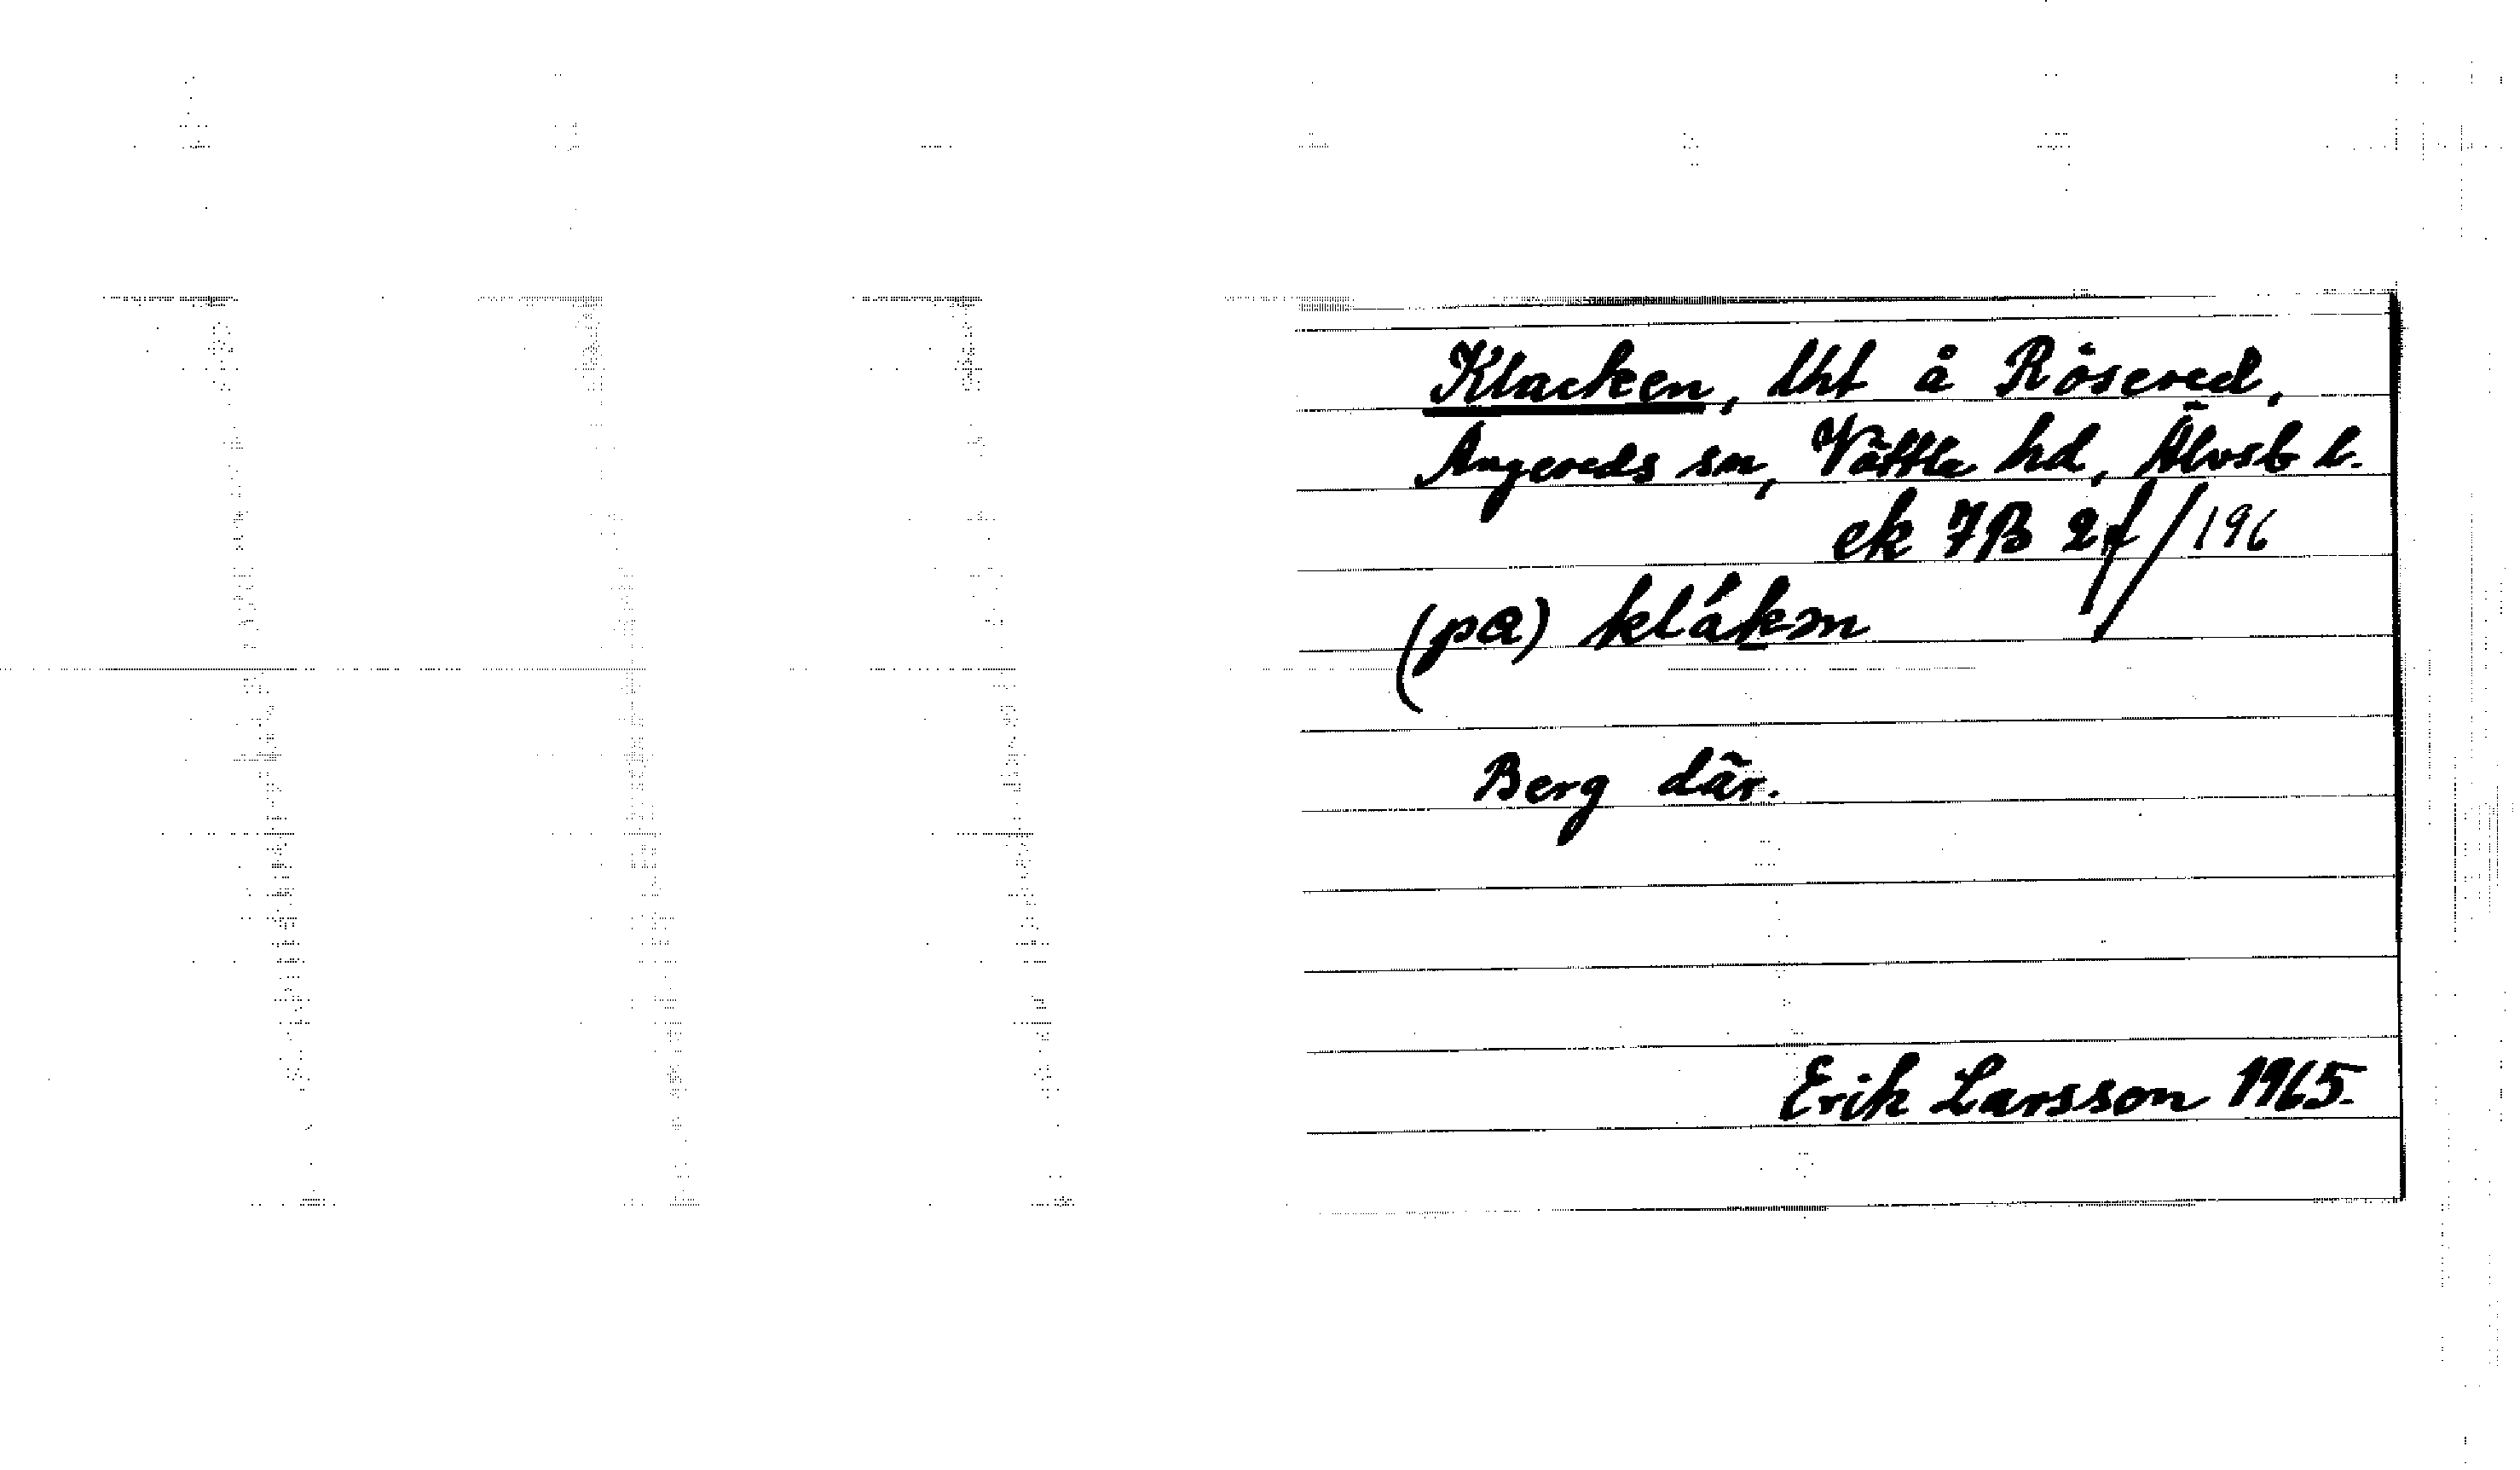 Klacken, lht å Rösered,
Angereds sn, Vättle hd, Älvsb l.
ek 7B 2f/196
(pɑ) klákən
Berg där.
Erik Larsson 1965.